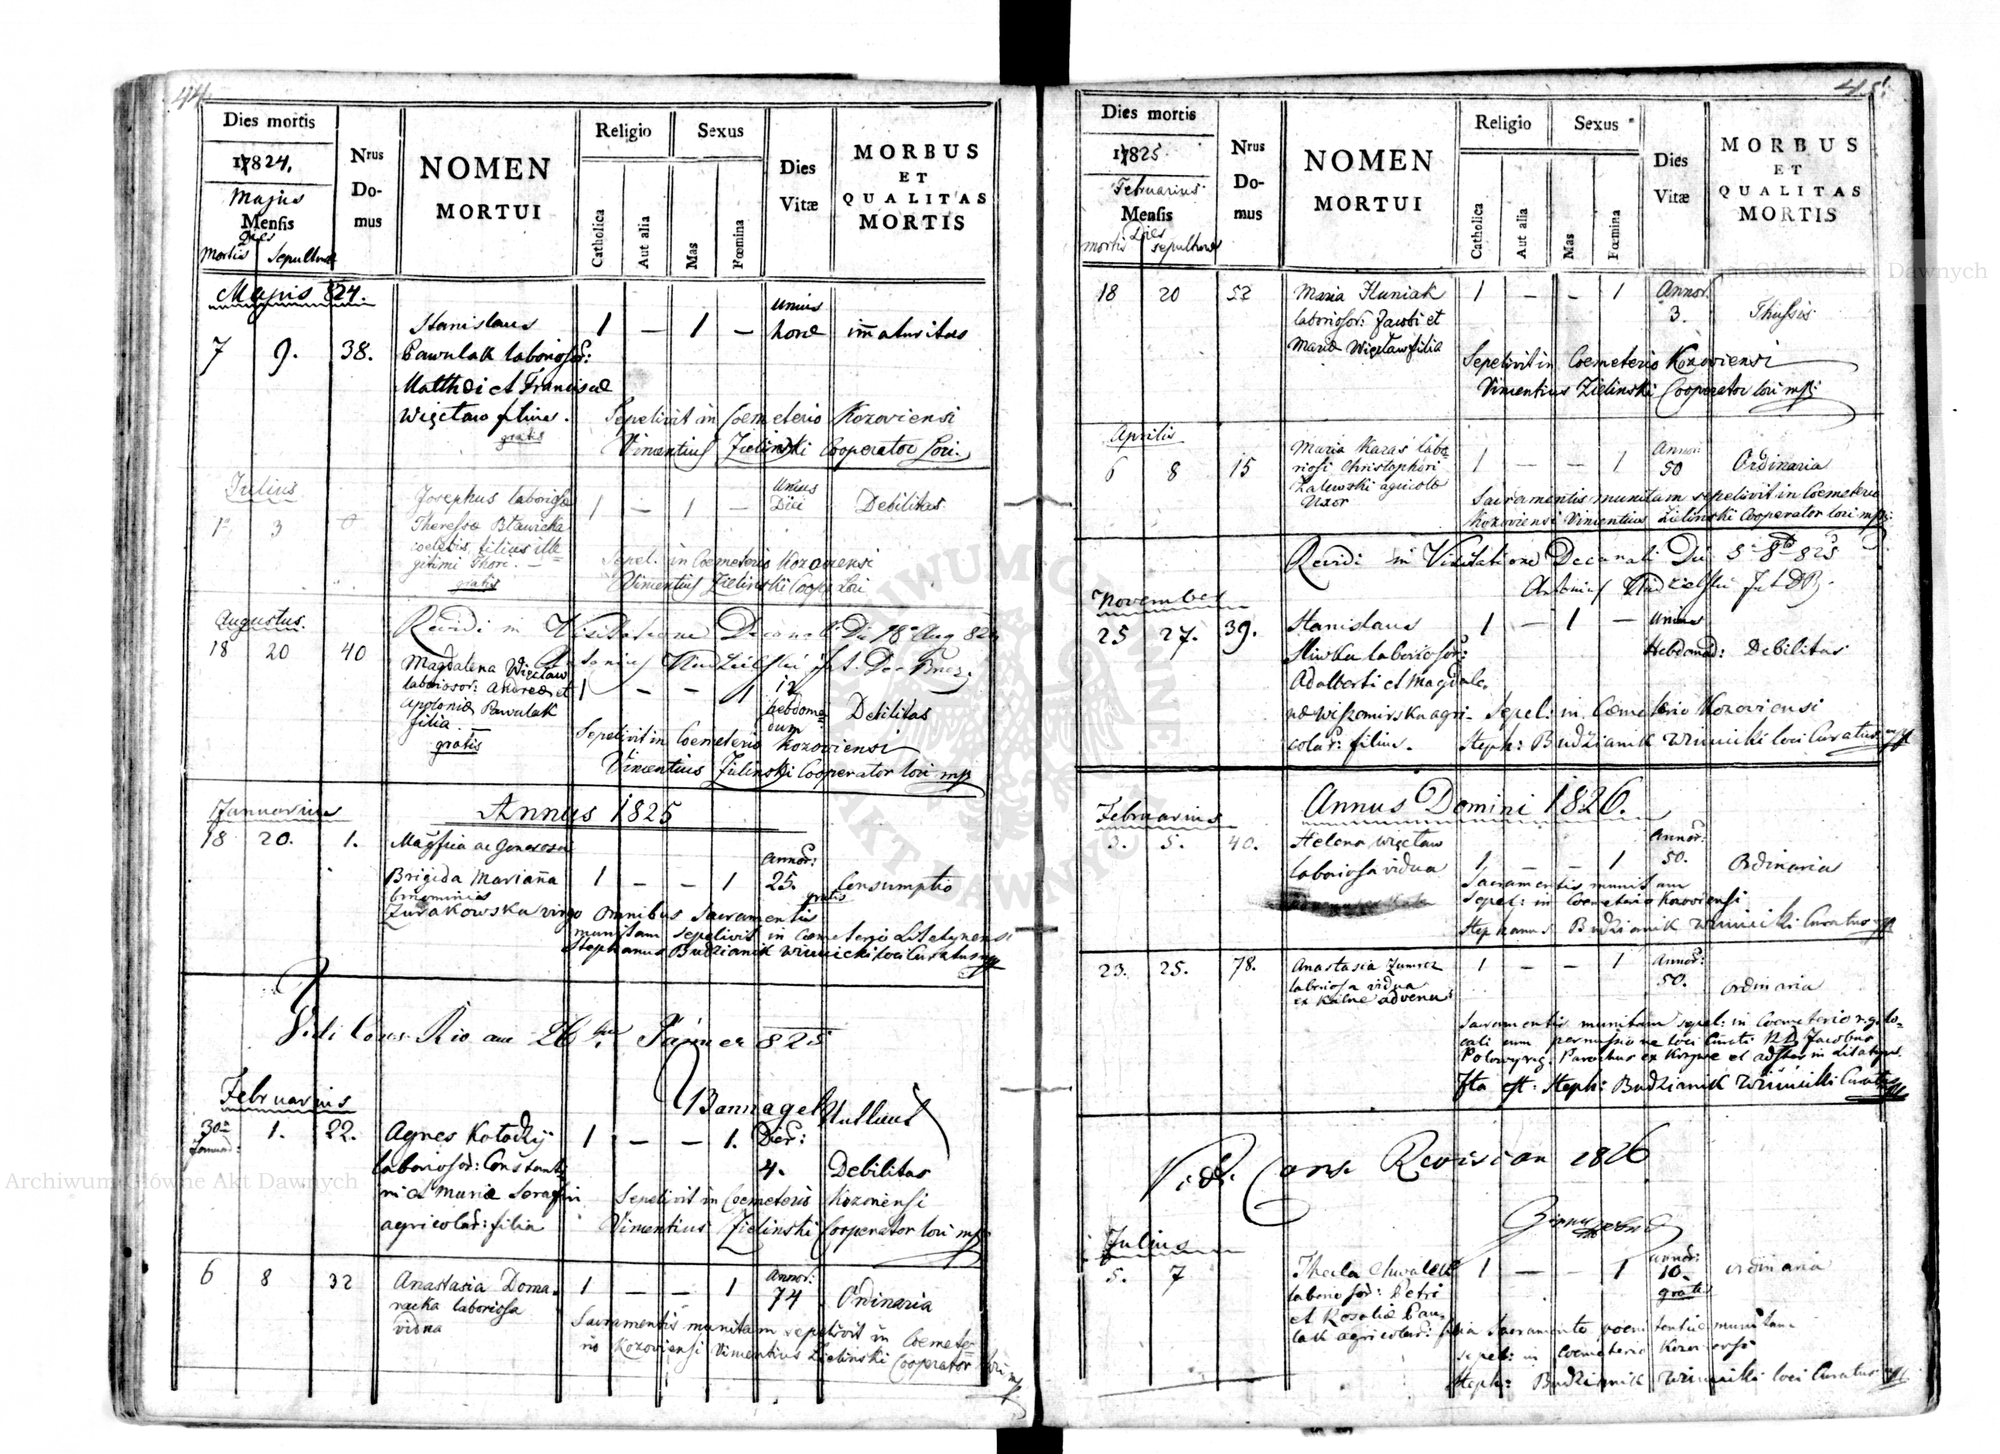 44.
Dies mortis
17824.
Majus
Mensis
Dies
Mortis Sepulturae
Nrus
Do-
mus
NOMEN
MORTUI
Religio
Catholica
Aut alia
Sexus
Mas
Fœmina
Dies
Vitæ
MORBUS
ET
QUALITAS
MORTIS
Majus 824.
7 9. 38.
Stanislaus
Pawulak laboriosor:
Matthæi et Franciscæ
Więcław filius.
gratis
1 — 1 —
Unius
horæ
immaturitas
Sepelivit in Coemeterio Kozoviensi
Vincentius Zielinski Cooperator Loci.
Julius
1 3 0
Josephus laboriosæ
Theresæ Bławicka
coelebis filius ille-
gitimi Thori.
gratis
1 — 1 —
Unius
Diei
Debilitas
Sepel. in Coemeterio Kozoviensi
Vincentius Zielinski Coop. Loci
Augustus.
18 20 40
Revidi in Visitatione Decanali Die 18 Aug 824
Magdalena Więcław
laboriosor: Andreæ et
Apoloniæ Pawulak
filia
gratis
1 — — 1
12
hebdoma-
dum
Debilitas
Sepelivit in Coemeterio Kozoviensi
Vincentius Zielinski Cooperator loci mp
Januarius
Annus 1825
18 20. 1.
Magfica ac Generosa
Brigida Marianna
binominis
Zurakowska virgo
1 — — 1
Annor:
25.
gratis
Consumptio
omnibus Sacramentis
munitam sepelivit in Coemeterio Litetynensi
Stephanus Budzianik Winnicki loci Curatus mp
26 Jänner 825
Februarius
30 Januar: 1. 22.
Agnes Kołodzij
laboriosor: Constanti-
ni et Mariæ Serafin
agricolar: filia
1 — — 1.
Dier:
4.
Debilitas
Sepelivit in Coemeterio Kozoviensi
Vincentius Zielinski Cooperator loci mp
6 8 32
Anastasia Doma-
racka laboriosa
vidua
1 — — 1
Annor:
74
Ordinaria
Sacramentis munitam sepelivit in Coemete-
rio Kozoviensi Vincentius Zielinski Cooperator loci mp
45.
Dies mortis
17825.
Februarius
Mensis
Dies
mortis sepulturae
Nrus
Do-
mus
NOMEN
MORTUI
Religio
Catholica
Aut alia
Sexus
Mas
Fœmina
Dies
Vitæ
MORBUS
ET
QUALITAS
MORTIS
18 20 52
Maria Huniak
laboriosor: Jacobi et
Mariæ Więcław filia
1 — — 1
Annor.
3.
Thussis
Sepelivit in Coemeterio Kozoviensi
Vincentius Zielinski Cooperator loci mp
Aprilis
6 8 15
Maria Karas labo-
riosi Christophori
Zalewski agricolæ
Uxor
1 — — 1
Annor:
50
Ordinaria
Sacramentis munitam sepelivit in Coemeterio
Kozoviensi Vincentius Zielinski Cooperator loci mp
Revidi in Visitatione Decanali Die 5 8bris 825
November
25 27. 39.
Stanislaus
Sliwka laboriosor:
Adalberti et Magdale-
næ Wiszomirska agri-
colar: filius.
1 — 1 —
Unius
Hebdomad:
Debilitas
Sepel: in Coemeterio Kozoviensi
Steph: Budzianik Winnicki loci Curatus mp
Februarius
Annus Domini 1826.
3. 5. 40.
Helena Więcław
laboriosa vidua
1 — — 1
Annor:
50.
Ordinaria
Sacramentis munitam
Sepel: in Coemeterio Kozoviensi
Stephanus Budzianik Winnicki Curatus mp
23. 25. 78.
Anastasia
laboriosa vidua
ex Kalne advena:
1 — — 1
Annor:
50.
ordinaria
Sacramentis munitam sepel: in Coemeterio r.g. lo-
cali cum permissione loci Curati RD Jacobus
Ita est. Steph: Budzianik Winnicki Curatus mp
Vidi Cons. Revision 1826
Julius
5. 7
Thecla Chwalek
laboriosor: Petri
et Rosaliæ Paw-
lak agricolar: filia
1 — — 1
annor:
10.
gratis
ordinaria
Sacramento poenitentiæ munitam
sepel: in Coemeterio Kozoviensi
Steph: Budzianik Winnicki loci Curatus mp
Archiwum Główne Akt Dawnych
Archiwum Główne Akt Dawnych
ARCHIWUM GŁÓWNE AKT DAWNYCH